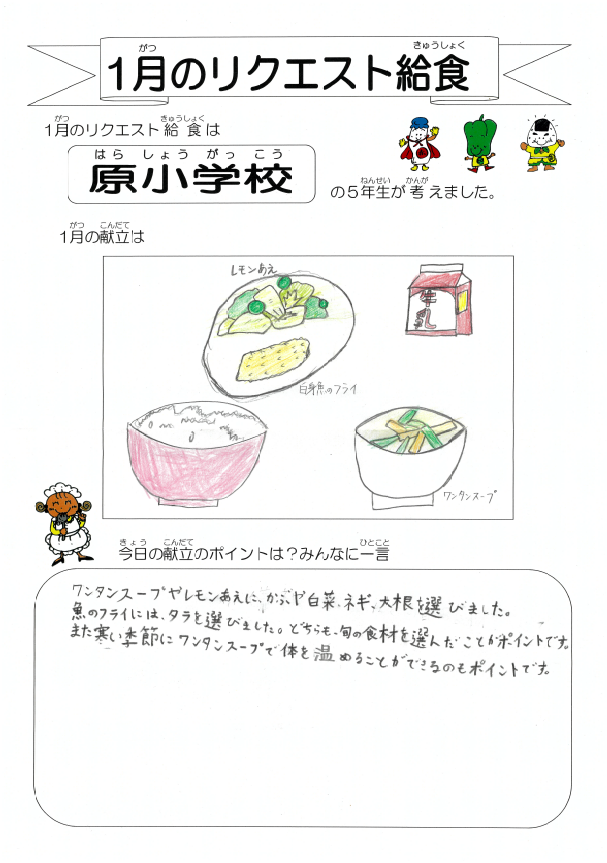 1月のリクエスト給食
がつ きゅうしょく
1月のリクエスト給食は
がつ きゅうしょく
原小学校
はらしょうがっこう
の5年生が考えました。
ねんせい かんが
1月の献立は
がつ こんだて
レモンあえ
牛乳
白身魚のフライ
ワンタンスープ
今日の献立のポイントは?みんなに一言
きょう こんだて ひとこと
ワンタンスープやレモンあえに、かぶや白菜、ネギ、大根を選びました。
魚のフライには、タラを選びました。どちらも、旬の食材を選んだことがポイントです。
また寒い季節にワンタンスープで体を温めることができるのもポイントです。